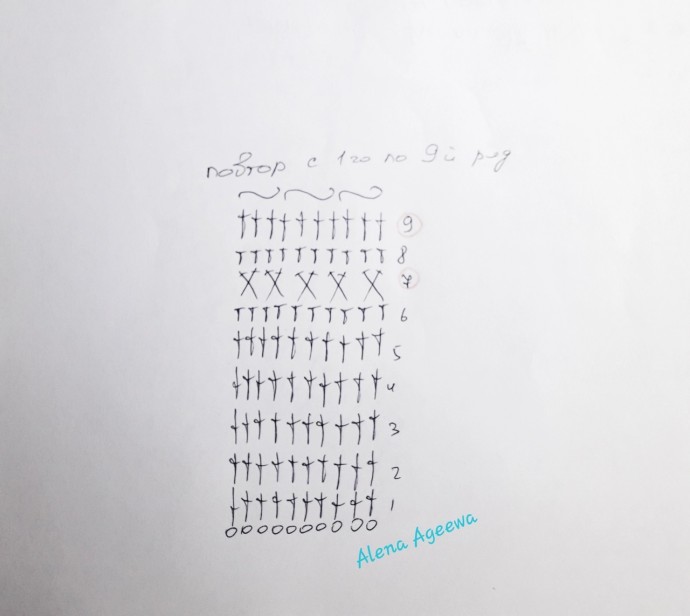 повтор с 1го по 9й ряд
9
8
7
6
5
4
3
2
1
Alena Ageewa